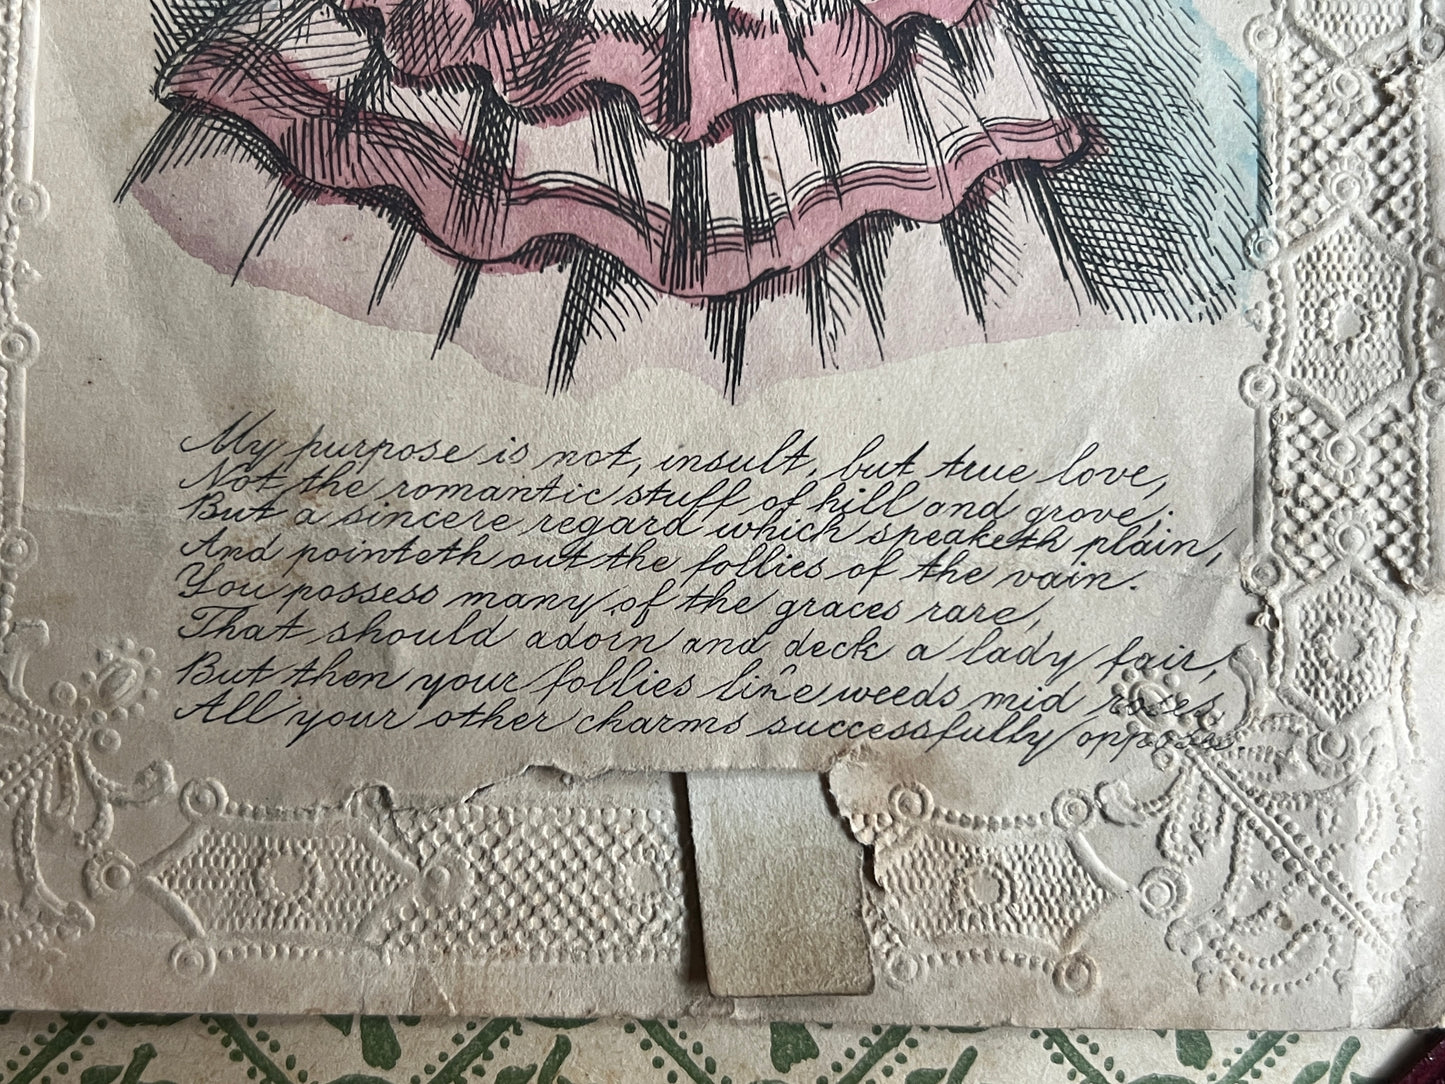 My purpose is not, insult, but true love,
Not the romantic stuff of hill and grove;
But a sincere regard which speaketh plain,
And pointeth out the follies of the vain.
You possess many, of the graces rare,
That should adorn and deck a lady fair,
But then your follies like weeds mid roses
All your other charms successfully opposes.